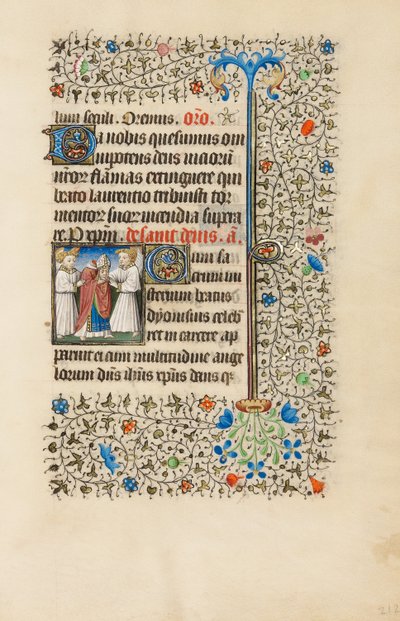 lum seculi. Oremus. oro.
Da nobis quesumus om
nipotens deus uiciorū
nr̄or flamas extinguere qui
beato laurentio tribuisti tor
mentor suor incendia supera
re. P xp̄m. de sanct denis. ā.
Cum sa
crum mi
sterium beatus
dyonisius celeb
ret in carcere ap
paruit ei cum multitudine ange
lorum dn̄s ih̄us xp̄us dens q
212